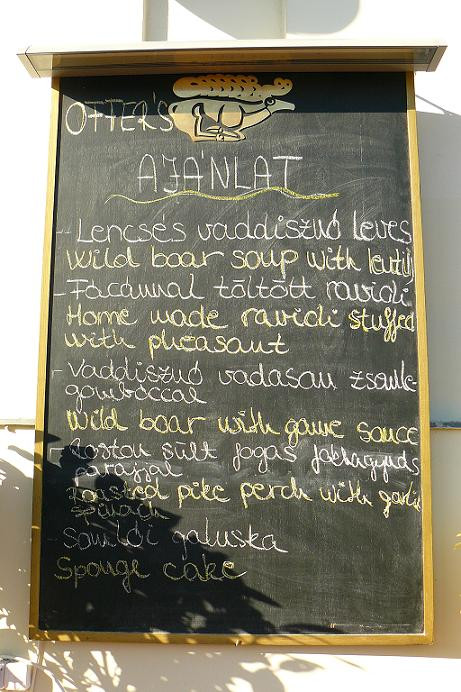 OFFER'S
AJÁNLAT
- Lencsés vaddisznó leves
Wild boar soup with lentil
- Fácánnal töltött ravioli
Home made ravioli stuffed
with pheasant
- Vaddisznó vadasan zsemle-
gombóccal
Wild boar with game sauce
- Roston sült fogas fokhagymás
parajjal
Roasted pike perch with garlic
spinach
- Somlói galuska
Sponge cake